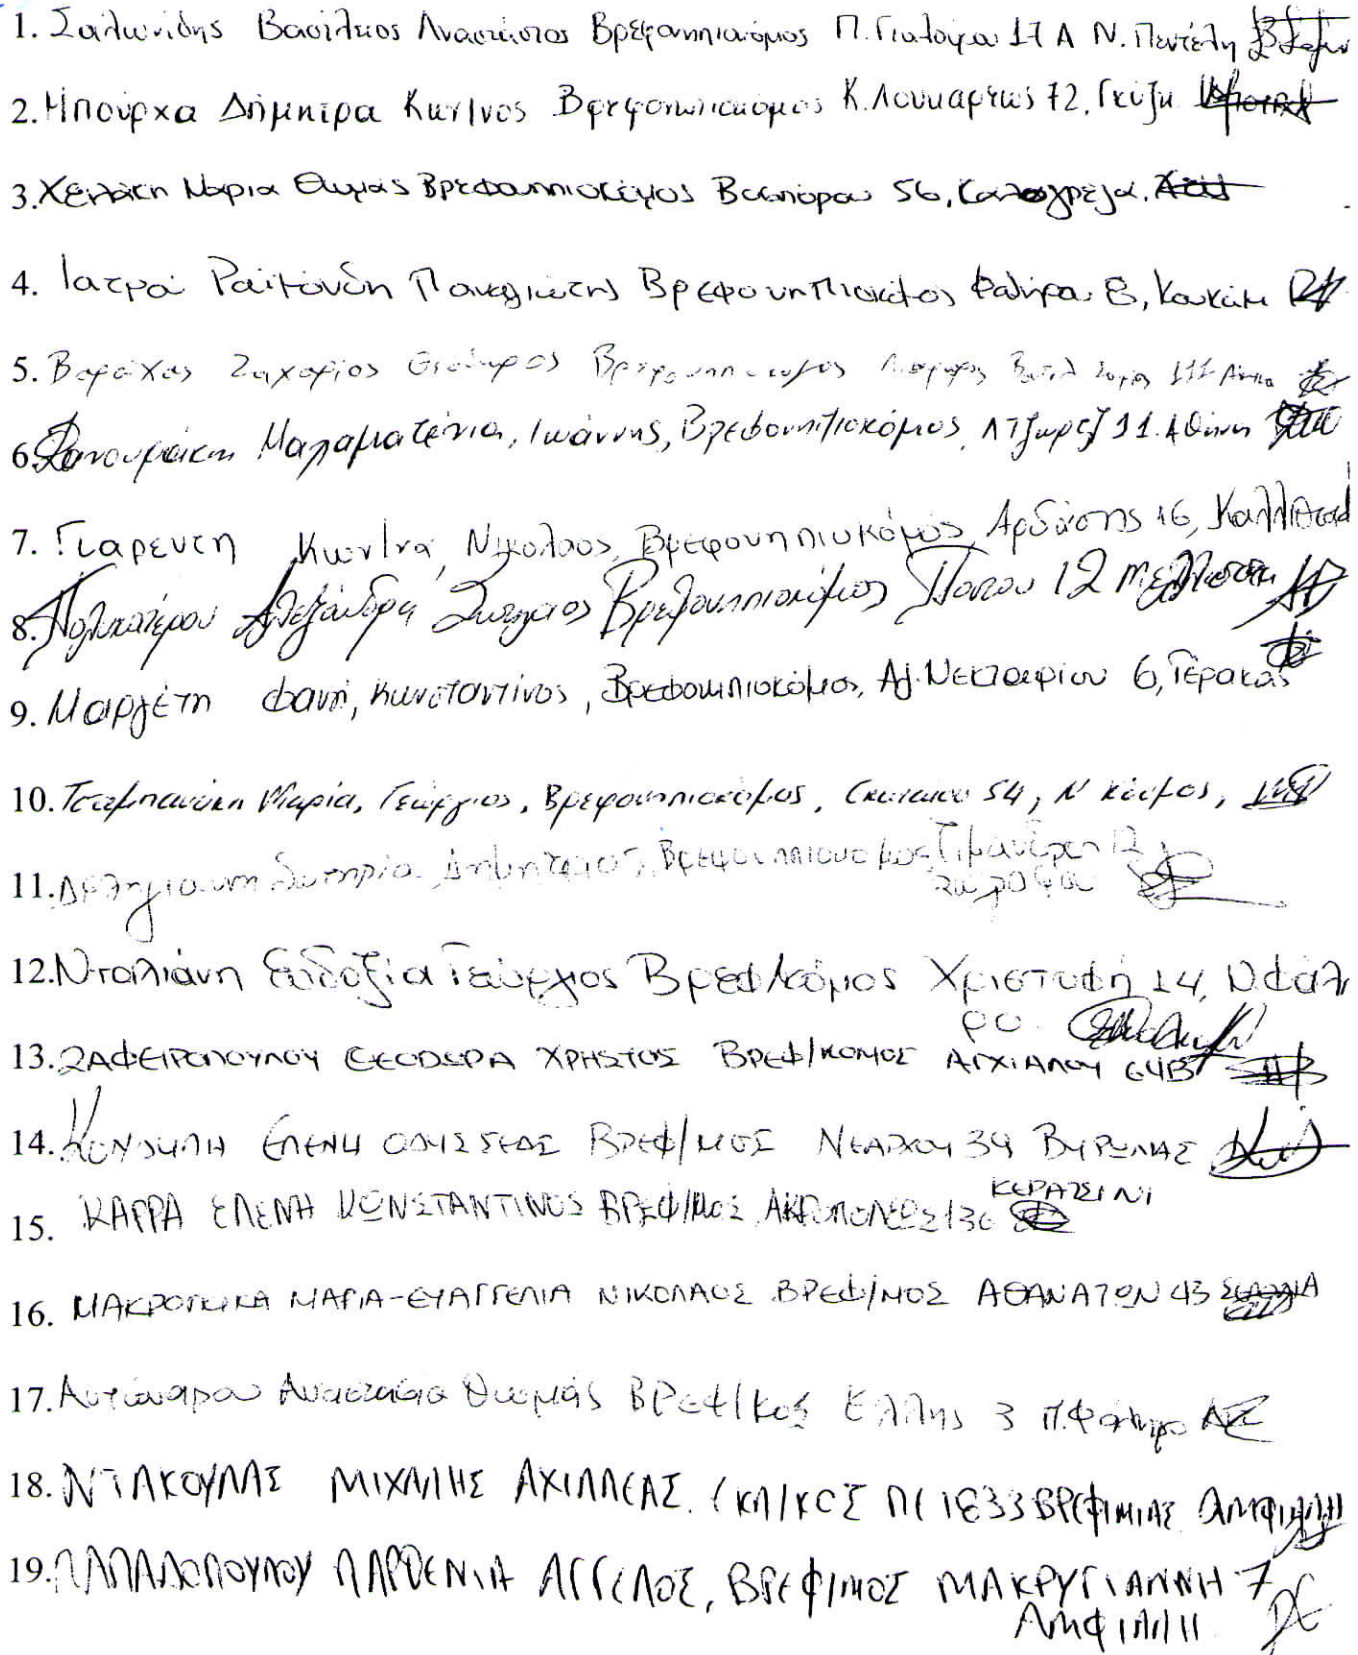 1. Σαλωνίδης Βασίλειος Αναστάσιος Βρεφονηπιοκόμος Π. Γιαλούρου 17 Α Ν. Πεντέλη
2. Μπούρχα Δήμητρα Κων/νος Βρεφονηπιοκόμος Κ. Λουκάρεως 72, Γκύζη
3. Χειλάκη Μαρία Θωμάς Βρεφονηπιοκόμος Βοσπόρου 56, Καλογρέζα.
4. Ιατρά Ραϊμόνδη Παναγιώτης Βρεφονηπιοκόμος Φαλήρου 8, Κουκάκι
5. Ζαχαρίας Θεόδωρος Βρεφονηπιοκόμος 111
6. Φανουράκη Μαλαματένια, Ιωάννης, Βρεφονηπιοκόμος, Λ Τζωρτζ 11. Αθήνα
7. Γιαρεντη Κων/να, Νικόλαος, Βρεφονηπιοκόμος, Αρδάσης 16, Καλλιθέα
8. Πολυκατέρου Αλεξάνδρα Βρεφονηπιοκόμος 12 Μελίσσια
9. Μαργέτη Φανή, Κωνσταντίνος, Βρεφονηπιοκόμος, Αγ. Νεκταρίου 6, Γέρακας
10. Τσαμπανάκη Μαρία, Γεώργιος, Βρεφονηπιοκόμος, 54, Ν Κόσμος,
11. Δεληγιαννη Σωτηρία Δημήτριος, Βρεφονηπιοκόμος 12
12. Νταλιάνη Ευδοξία Γεώργιος Βρεφ/κόμος Χριστοφή 14, Ν. Φάλη
ρο.
13. ΖΑΦΕΙΡΟΠΟΥΛΟΥ ΘΕΟΔΩΡΑ ΧΡΗΣΤΟΣ ΒΡΕΦ/ΚΟΜΟΣ ΑΓΧΙΑΛΟΥ 64Β
14. ΚΟΝΔΥΛΗ ΕΛΕΝΗ ΟΔΥΣΣΕΑΣ ΒΡΕΦ/ΜΟΣ ΝΕΑΡΧΟΥ 34 ΒΥΡΩΝΑΣ
ΚΕΡΑΤΣΙΝΙ
15. ΚΑΡΡΑ ΕΛΕΝΗ ΚΩΝΣΤΑΝΤΙΝΟΣ ΒΡΕΦ/ΜΟΣ ΑΚΡΟΠΟΛΕΩΣ 130
16. ΜΑΡΙΑ-ΕΥΑΓΓΕΛΙΑ ΝΙΚΟΛΑΟΣ ΒΡΕΦ/ΜΟΣ ΑΘΑΝΑΤΩΝ 43
17. Αναστασία Θωμάς ΒΡΕΦ/ΚΟΣ Έλλης 3 Π. Φάληρο
18. ΝΤΑΚΟΥΛΑΣ ΜΙΧΑΛΗΣ ΑΧΙΛΛΕΑΣ. ΑΜΦΙΑΛΗ
19. ΠΑΠΑΔΟΠΟΥΛΟΥ ΠΑΡΘΕΝΙΑ ΑΓΓΕΛΟΣ, ΒΡΕΦ/ΜΟΣ ΜΑΚΡΥΓΙΑΝΝΗ 7
ΑΜΦΙΑΛΗ